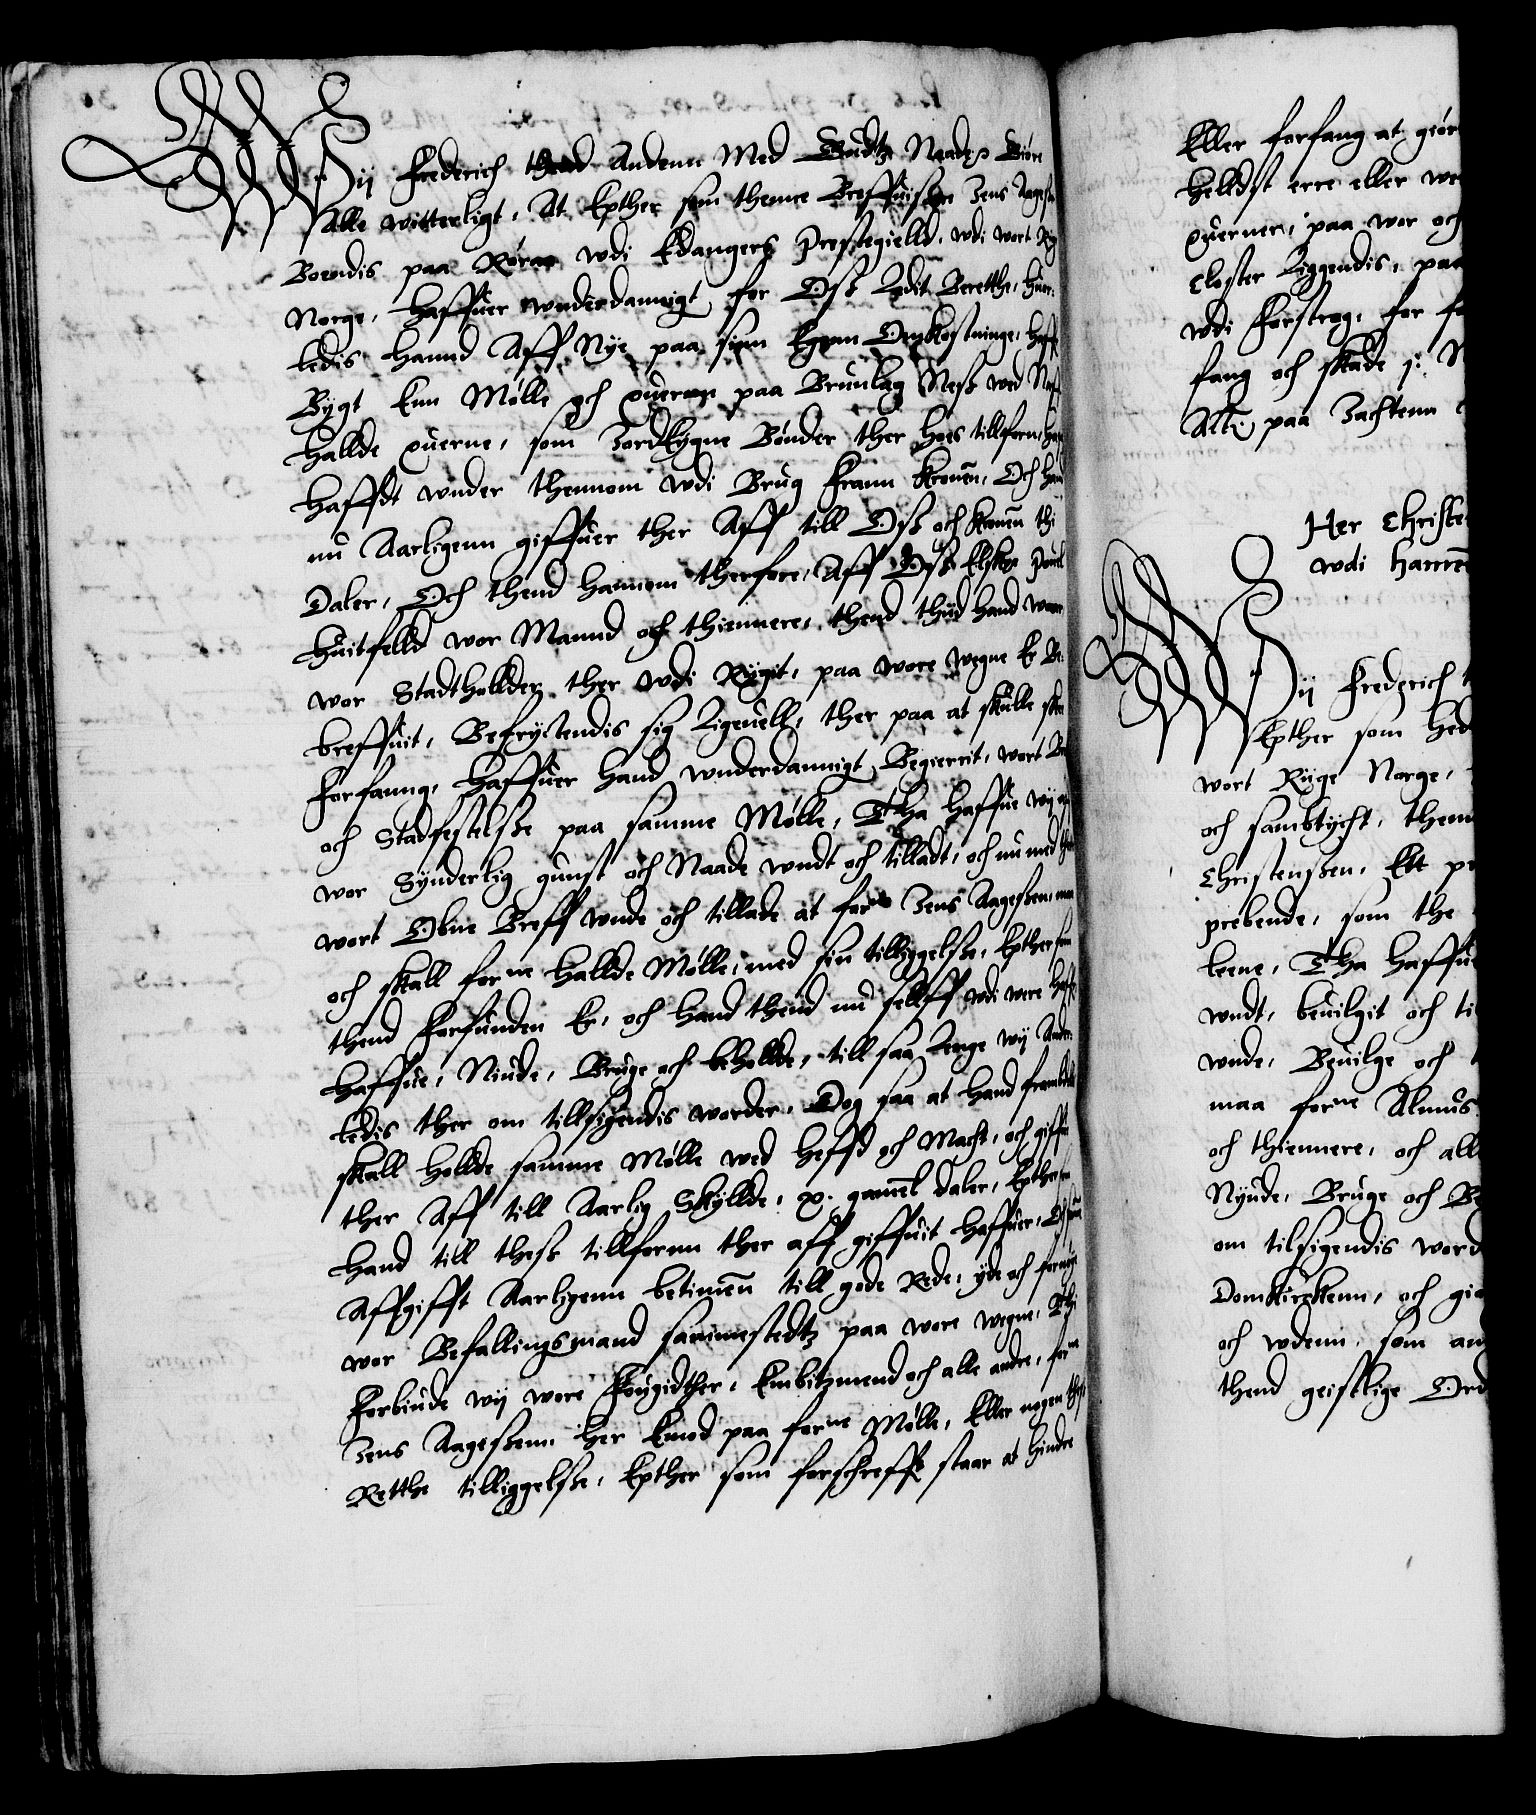 Wij Frederich thend Andenn Med Gudtz Naade Giøre
Alle witterligt, At Epther som thenne Breffuiszer Jens Aagesen
Boendis paa Røraa wdi Edangers Prestegielld, wdi wort Rige
Norge, Haffuer wnderdannigt for Osz Ladit Berette, huor-
ledis hannd Aff Nye paa sinn Egenn Omkostninge, haffr
Bygt Enn Mølle och quernne paa Brunlag Nesz wed
Hallde querne, som Jordeygne Bønder ther hoes tillforn
Haffdt wnder thennom wdi Brug Frann Kronen, Och hand
nu Aarligenn giffuer ther Aff till Osz och Kronen thi
Daler, Och thend hannom therfore, Aff Osz Elskelig Pouel
Huitfelld wor Mannd och thiennere, thend thiid hand waar
wor Stadthollder ther wdi Riigit, paa wore wegne Er Be-
breffuit, Befryctendis sig Ligeuell, ther paa at skulle skee
Forfanng, Haffuer hand wnderdannigt Begierrit, wort Breff
och Stadfestelsze paa samme Mølle, Tha haffue wij aff
wor Synderlig gunst och Naade wndt och tilladt, och nu med thette
wort Obne Breff wnde och tillade at forne Jens Aageszen maa
och skall forne Hallde Mølle, med sin tilliggelsze, Epther som
thend Forfunden Er, och hand thend nu sellff wdi were haffr
Haffue, Niude, Bruge och beholde, till saa Lenge wij Ander-
ledis ther om tillsigendis worder, Dog saa at hand frembdelis
skall hollde samme Mølle wed heffd och Macht, och giffue
ther Aff till Aarlig Skyllde, x. gamel daler, Epthersom
hand till thesz tillfornn ther aff giffuit haffuer, Och samme
Affgifft Aarligenn betimen till gode Rede, yde och fornøye
wor Befallingsmand sammestedtz paa wore wegne, Thi
Forbiude wij wore Fougidther, Embitzmend och alle andre, forne
Jens Aageszenn her Emod paa forne Mølle, Eller nogen thesz
Retthe tilliggelsze, Epther som forschreffuit staar at hindre
Eller forfang at giøre
helldst erre eller wer
querner, paa wor och
Closter Liggendis, paa
wdi Forstrag, for
fang och skade
Actu paa Jachtenn
Her Christen
wdi Hammer
Wij Frederich
Epther som hed
wort Riige Norge,
och sambtycht, them
Christenszen, Ett pr
prebende, som the
leene, Tha haffue
wndt, beuilgit och ti
wnde, Beuilge och
maa forne Almus
och thiennere, och all
Nyude, Bruge och Be
om tilsigendis word
Domkirckenn, och gi
och wdenn, som an
thend geistlige Ord